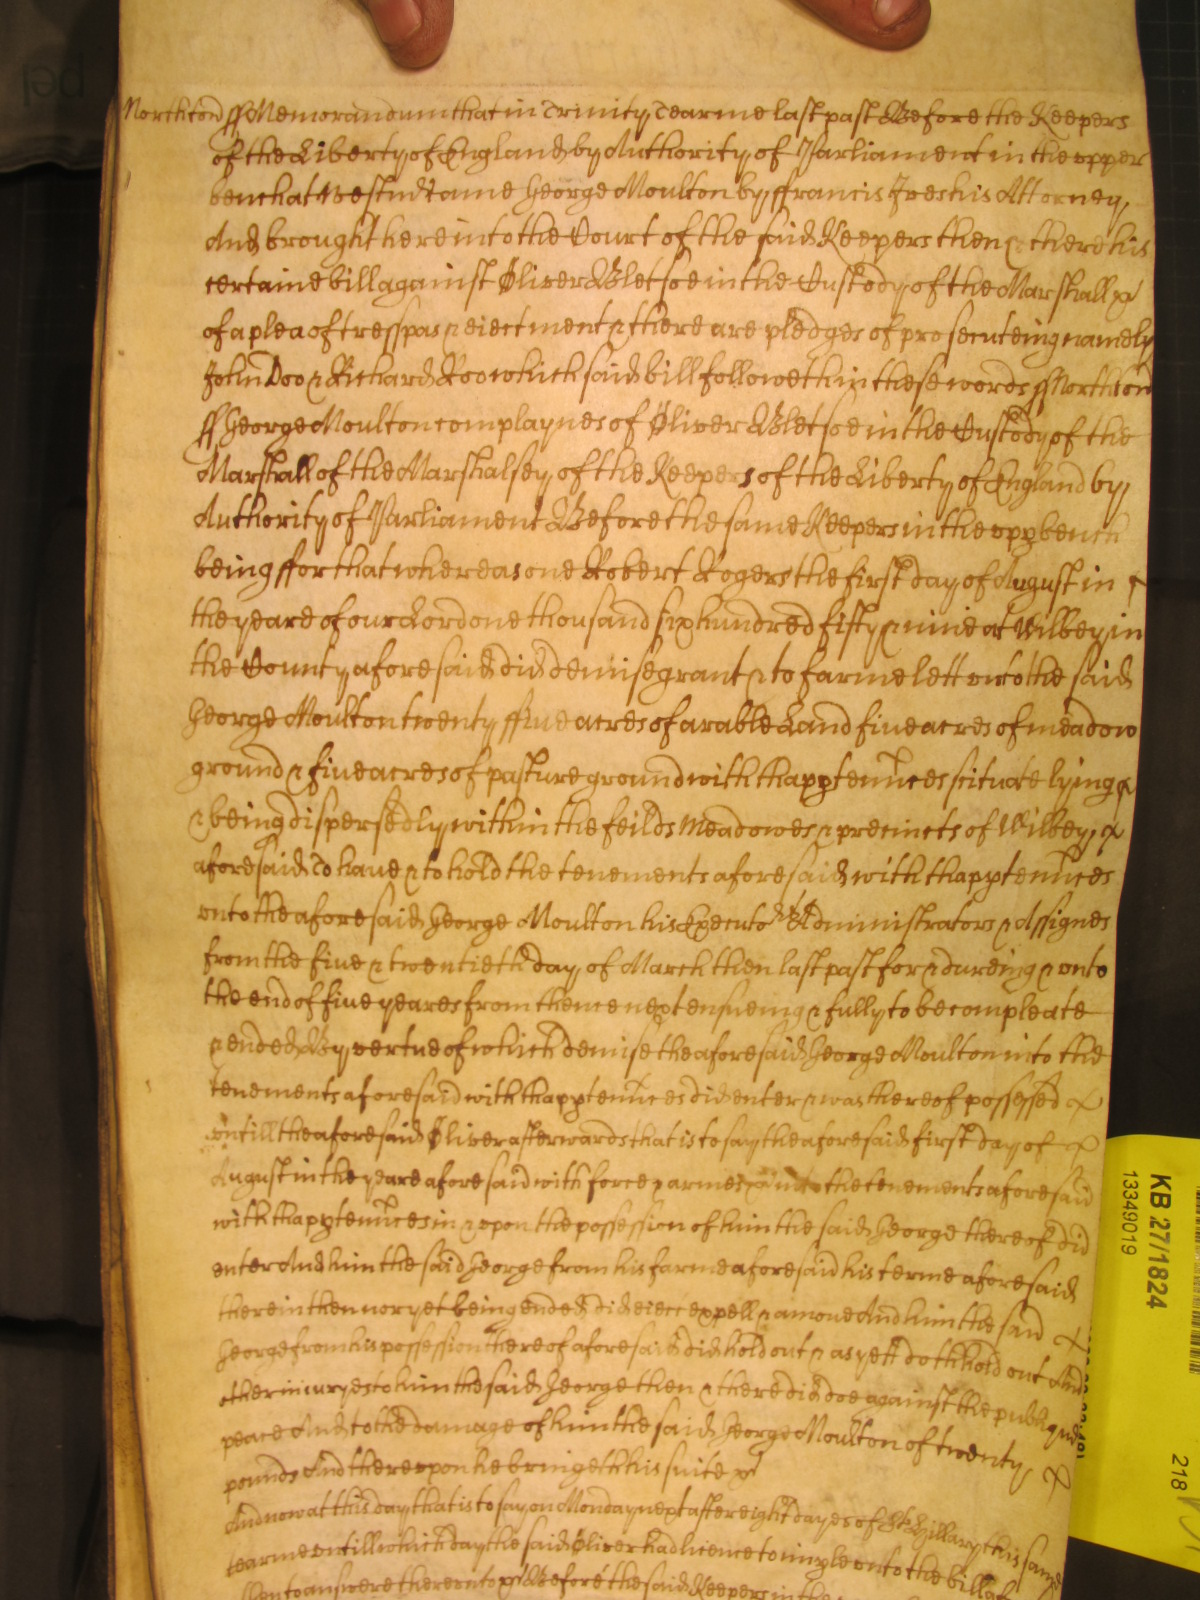 Northton ff Memorandum that in Trinity Tearme last past Before the Keepers
of the Liberty of England by Authority of Parliament in the upper
bench at Westmr came George Moulton by ffrancis Ives his Attorney,
And brought here into the Court of the said Keepers then & there his
certaine bill against Oliver Bletsoe in the Custody of the Marshall &c
of a plea of tresspas & eiectment & there are pledges of prosecuteing namely
John Doo & Richard Roo which said bill followeth in these words ff Northton
ff George Moulton complaynes of Oliver Bletsoe in the Custody of the
Marshall of the Marshalsey of the Keepers of the Liberty of England by
Authority of Parliament Before the same Keepers in the upp bench
being ffor that whereas one Robert Rogers the first day of August in
the yeare of our Lord one thousand six hundred fifty & nine at Wilbey in
the County aforesaid did demise grant & to farme lett unto the said
George Moulton twenty ffive acres of arable Land five acres of meadow
ground & five acres of pasture ground with thapptennces scituate lying
& being dispersedly within the feilds meadowes & precincts of Wilbey
aforesaid To have & to hold the tenements aforesaid with thapptennces
unto the aforesaid George Moulton his Executors Administrators & Assignes
from the five & twentieth day of March then last past for & dureing & unto
the end of five yeares from thence next ensueing & fully to be compleate
& ended By vertue of which demise the aforesaid George Moulton into the
tenements aforesaid with thapptennces did enter & was thereof possessed
untill the aforesaid Oliver afterwards that is to say the aforesaid first day of
August in the yeare aforesaid with force & armes &c into the tenements aforesaid
with thapptennces in & upon the possession of him the said George thereof did
enter And him the said George from his farme aforesaid his terme aforesaid
therein then nor yet being ended did eiect expell & amove And him the said
George from his possession thereof aforesaid did hold out & as yett doth hold out And
other iniuryes to him the said George then & there did doe against the publique
peace And to the damage of him the said George Moulton of twenty
pounds And thereupon he bringeth his suite &c
And now at this day that is to say on Monday next after eight dayes of St Hillary this same
tearme untill which day the said Oliver had licence to imple unto the bill
then to answere thereunto &c Before the said Keepers in the
KB 27/1824
13349019
218